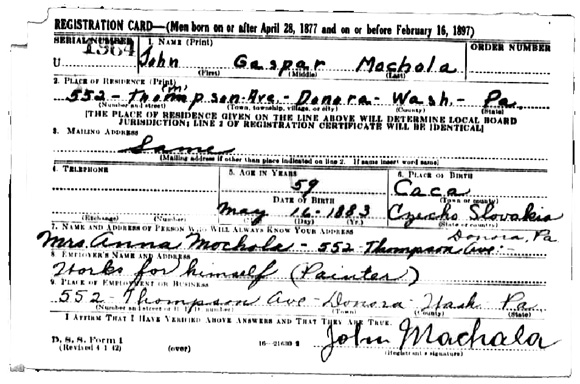 REGISTRATION CARD—(Men born on or after April 28, 1877 and on or before February 16, 1897)
SERIAL NUMBER 1. NAME (Print) ORDER NUMBER
U 1364 John Gaspar Machola
(First) (Middle) (Last)
2. PLACE OF RESIDENCE (Print)
552 - Thompson Ave - Donora - Wash - Pa
(Number and street) (Town, township, village, or city) (County) (State)
[THE PLACE OF RESIDENCE GIVEN ON THE LINE ABOVE WILL DETERMINE LOCAL BOARD
JURISDICTION; LINE 2 OF REGISTRATION CERTIFICATE WILL BE IDENTICAL]
3. MAILING ADDRESS
Same
(Mailing address if other than place indicated on line 2. If same insert word same)
4. TELEPHONE 5. AGE IN YEARS 6. PLACE OF BIRTH
59 Caca
DATE OF BIRTH (Town or county)
May 16 - 1883 Czecho Slovakia
(Exchange) (Number) (Mo.) (Day) (Yr.) (State or country)
7. NAME AND ADDRESS OF PERSON WHO WILL ALWAYS KNOW YOUR ADDRESS Donora, Pa
Mrs. Anna Mochola - 552 Thompson Ave -
8. EMPLOYER'S NAME AND ADDRESS
Works for himself (Painter)
9. PLACE OF EMPLOYMENT OR BUSINESS
552 - Thompson Ave - Donora - Wash Pa
(Number and street or R. F. D. number) (Town) (County) (State)
I AFFIRM THAT I HAVE VERIFIED ABOVE ANSWERS AND THAT THEY ARE TRUE.
D. S. S. Form 1
(Revised 4-1-42) (over) 16—21630-2
John Machala
(Registrant's signature)